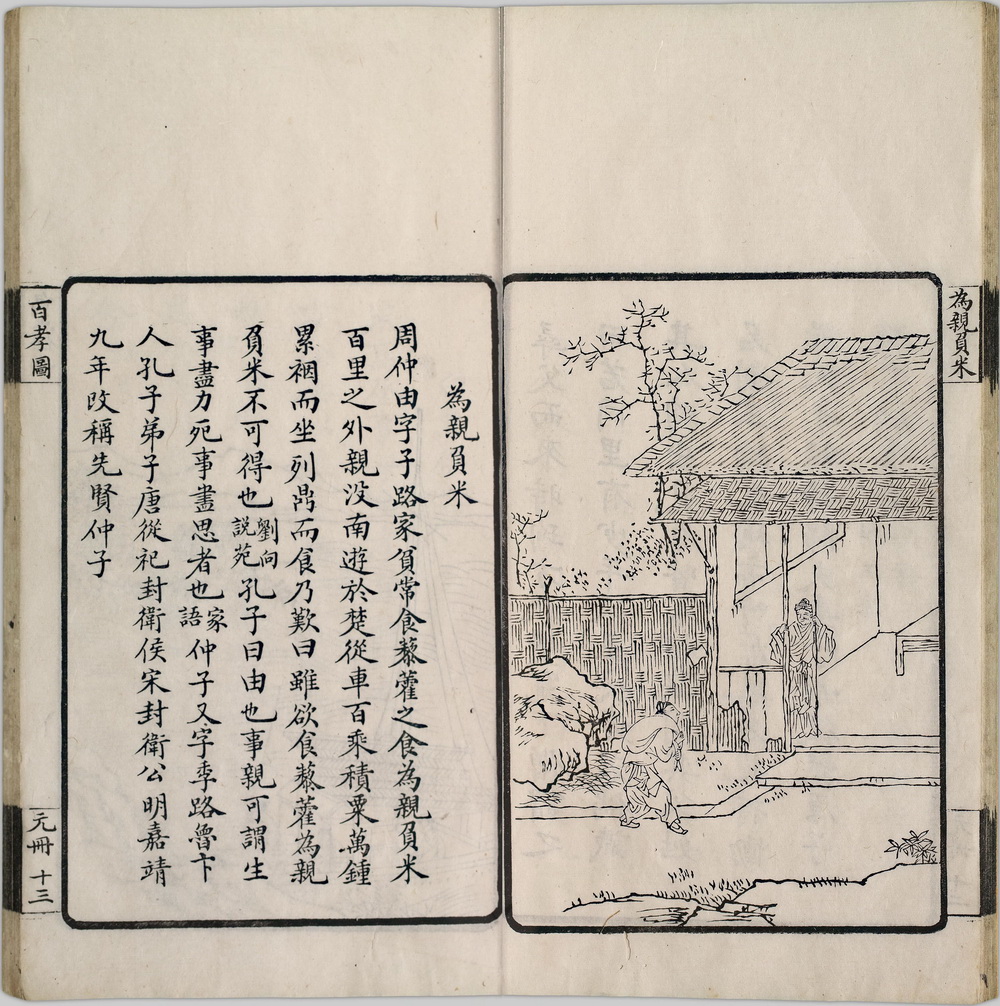 為親負米
為親負米
周仲由字子路家貧常食藜藿之食為親負米
百里之外親没南遊於楚從車百乘積粟萬鍾
累裀而坐列鼎而食乃歎曰雖欲食藜藿為親
負米不可得也劉向説苑孔子曰由也事親可謂生
事盡力死事盡思者也家語仲子又字季路魯卞
人孔子弟子唐從祀封衛侯宋封衛公明嘉靖
九年改稱先賢仲子
百孝圖
元冊 十三